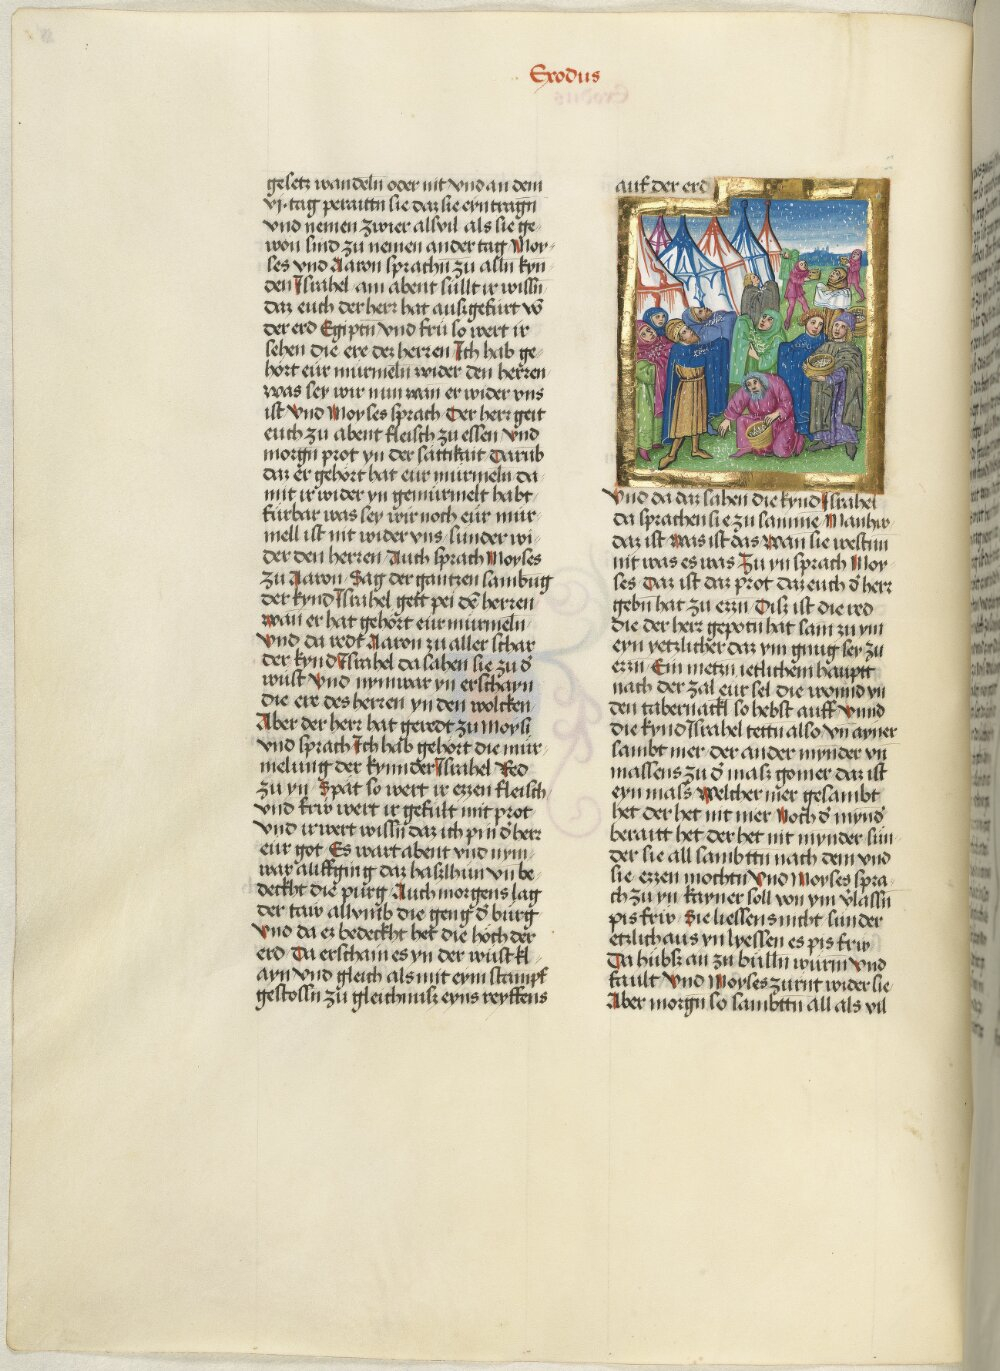 Exodus
gesetz wandeln oder nit vnd an dem
vi·tag peraittn sie daz sie eyn tragn
vnd nemen zwier allvil als sie ge-
won sind zu nemen ander tag Moy-
ses vnd Aaron sprachn zu alln kyn
den Israhel am abent süllt ir wissn
daz euch der herr hat auszgefürt vō
der erd Egiptn vnd frü so wert ir
sehen die ere dez herren Ich hab ge-
hört eur murmeln wider den herren
was sey wir nun wan er wider vns
ist Vnd Moyses sprach Der herr geit
euch zu abent fleisch zu essen vnd
morgn prot yn der sattikait Darūb
daz er gehört hat eur murmeln da
mit ir wider yn gemurmelt habt
fürbar was sey wir noch eür mur-
mell ist nit wider vns sunder wi-
der den herren Auch sprach Moyses
zu Aaron Sag der gantzen sambūg
der kynd Israhel gett pei dē herren
wan er hat gehört eur murmeln
Vnd da redt Aaron zu aller schar
der kynd Israhel da sahen sie zu d̄
wüst Vnd nymwar yn erschayn
die ere des herren yn den wolcken
Aber der herr hat geredt zu Moysi
vnd sprach Ich hab gehört die mur-
melung der kynnder Israhel Red
zu yn Spat so wert ir ezzen fleisch
vnd frw wert ir gefült mit prot
vnd ir wert wissn daz ich pin d̄ herr
eur got Es wart abent vnd nym-
war auffging daz haslhun vn be-
deckht die pürg Auch morgens lag
der taw allvmb die geng d̄ bürg
Vnd da er bedeckht het die höch der
erd Da erschain es yn der wüst kl-
ayn vnd gleich als mit eym stampf
gestossn zu gleichnusz eyns reyffens
auf der erd
Vnd da daz sahen die kynd Israhel
da sprachen sie zu samme Manhw
daz ist was ist das wan sie westnn
nit was es was Zu yn sprach Moy-
ses Daz ist daz prot daz euch d̄ herr
gebn hat zu ezzn Disz ist die red
die der herr gepotn hat sam zu ym
eyn yetzlicher daz ym gnug sey zu
ezzn Ein metzn ietlichem haupt
nach der zal eur sel die wonnd yn
den tabernackl so hebst auff Vnnd
die kynd Israhel tettn also vn ayner
sambt mer der ander mynder vn
massens zu d̄ masz gomer daz ist
eyn mass Welcher mer gesambt
het der het nit mer Noch d̄ mynd̄
beraitt het der het nit mynder sun-
der sie all sambttn nach dem vnd
sie ezzen mochtn Vnd Moyses spra-
ch zu yn kayner soll von ym v̄lassn
pis frw Sie liessens nicht sunder
etzlich aus yn lyessen es pis frw
Da hübsz an zu bülln würm vnd
fault Vnd Moyses zurnt wider sie
Aber morgn so sambttn all als vil